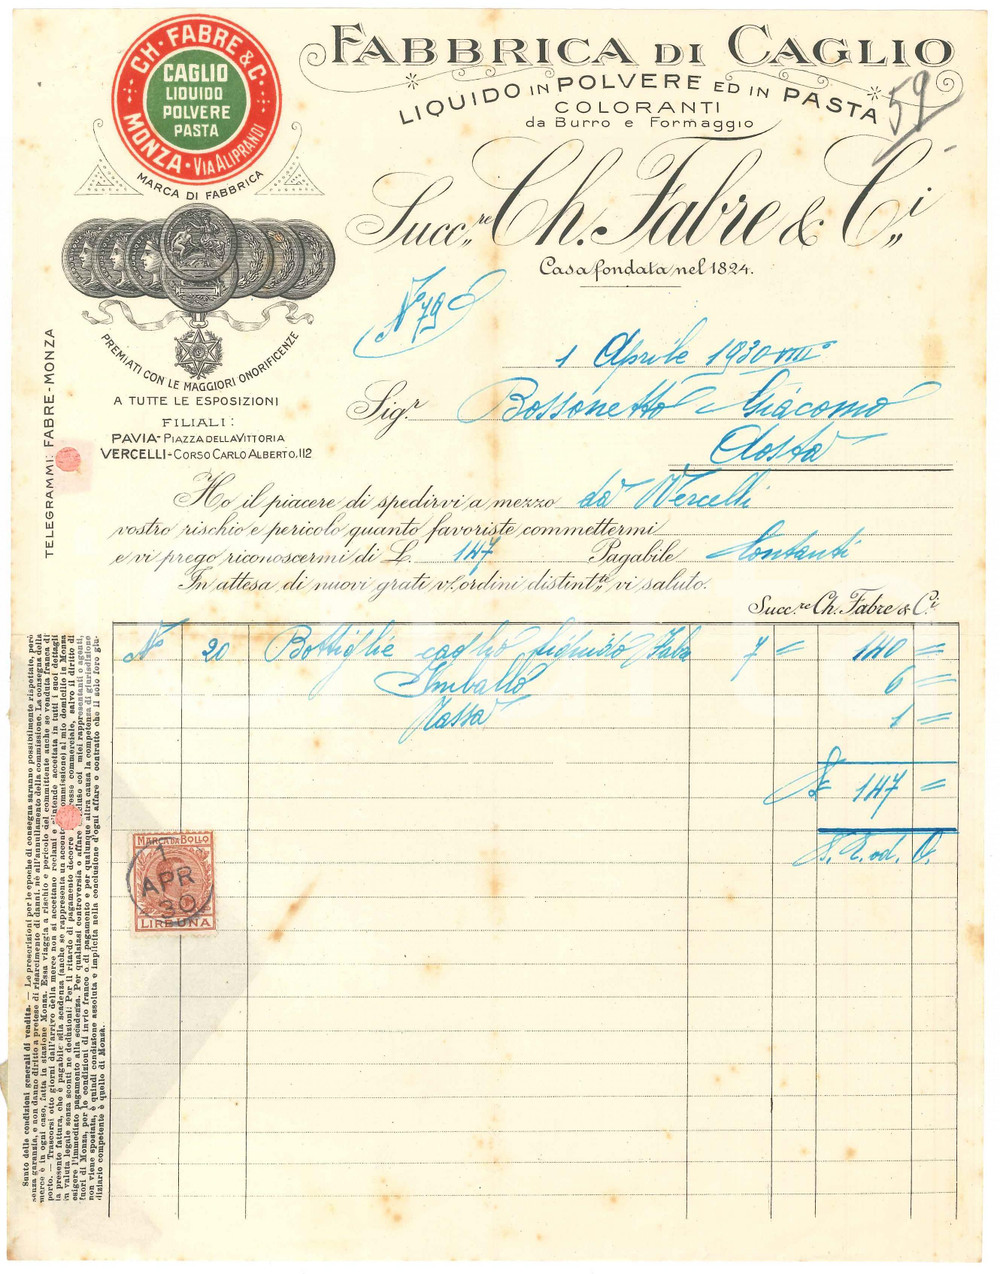 CH. FABRE & C.
MONZA - VIA ALIPRANDI
CAGLIO
LIQUIDO
POLVERE
PASTA
MARCA DI FABBRICA
FABBRICA DI CAGLIO
LIQUIDO IN POLVERE ED IN PASTA
COLORANTI
da Burro e Formaggio
59
Succ.re Ch. Fabre & C.i
Casa fondata nel 1824.
PREMIATI CON LE MAGGIORI ONORIFICENZE
A TUTTE LE ESPOSIZIONI
FILIALI:
PAVIA - PIAZZA DELLA VITTORIA
VERCELLI - CORSO CARLO ALBERTO, 112
TELEGRAMMI: FABRE-MONZA
No 79
1 Aprile 1930 VIIIo
Sig.r Bossonetto Giacomo
Aosta
Ho il piacere di spedirvi a mezzo da Vercelli
vostro rischio e pericolo quanto favoriste commettermi
e vi prego riconoscermi di L. 147 Pagabile Contanti
In attesa di nuovi grati v/ ordini distint.te vi saluto.
Succ.re Ch. Fabre & C.i
No 20 Bottiglie caglio liquido Fabre 7 = 140 =
Imballo 6 =
Tassa 1 =
£ 147 =
S. E. od. O.
MARCA DA BOLLO
1
APR
30
LIRE UNA
Sunto delle condizioni generali di vendita. — Le prescrizioni per le epoche di consegna saranno possibilmente rispettate, però
senza garanzia, e non danno diritto a pretese di risarcimento di danni, nè all'annullamento della commissione. La consegna della
merce è in ogni caso, fatta in stazione Monza. Essa viaggia a rischio e pericolo del committente anche se venduta franca di
porto. — Trascorsi otto giorni dall'arrivo della merce non si accettano reclami e s'intende accettata in tutti i suoi dettagli
la presente fattura, che è pagabile alla scadenza (anche se rappresenta un acconto commissione) al mio domicilio in Monza
in valuta legale senza sconti nè deduzioni. Per il ritardo di pagamento decorre interesse commerciale, salvo il diritto di
esigere l'immediato pagamento alla scadenza. Per qualsiasi controversia o affare concluso coi miei rappresentanti o agenti,
fuori di Monza, per le condizioni di invio franco o di pagamento e per qualunque altra causa la competenza di giurisdizione
non viene spostata, è quindi condizione assoluta e implicita nella conclusione d'ogni affare o contratto che il solo foro giu-
diziario competente è quello di Monza.